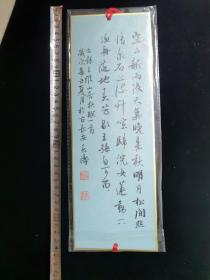 空山新雨後天氣晚來秋明月松间照
清泉石上流竹喧歸浣女蓮動下
渔舟随意春芳歇王孫自可留
王維山居秋暝一首
夏月於古长安